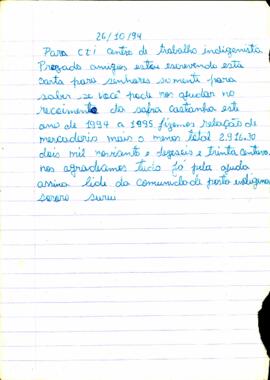 26/10/94
Para cti centro de trabalho indigenista
Prezado amigos estou escrevendo esta
carta para senhores somente para
saber se você pode nos ajudar no
recoimento da safra castanha este
ano de 1994 a 1995 fizemos relação de
mercadoria mais o menos total 2.916.30
dois mil novicento e dezeseis e trinta centavo
nos agradeamos tudo já pela ajuda
assina lide da comunidade posto indigena
sororo suruí